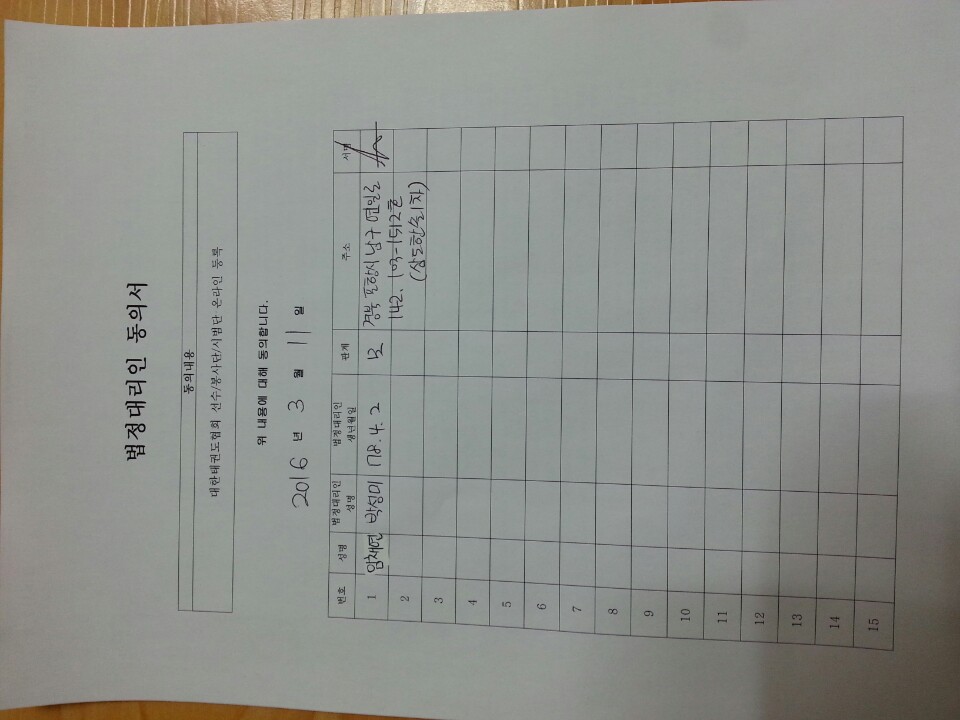 법정대리인 동의서
동의내용
대한태권도협회 선수/봉사단/시범단 온라인 등록
위 내용에 대해 동의합니다.
2016 년 3 월 11 일
번호 성명 법정대리인 성명 법정대리인 생년월일 관계 주소 서명
1 임채연 박성미 78.4.2 모 경북 포항시 남구 연일로
142. 103-1512호
(삼도한솔1차)
2
3
4
5
6
7
8
9
10
11
12
13
14
15